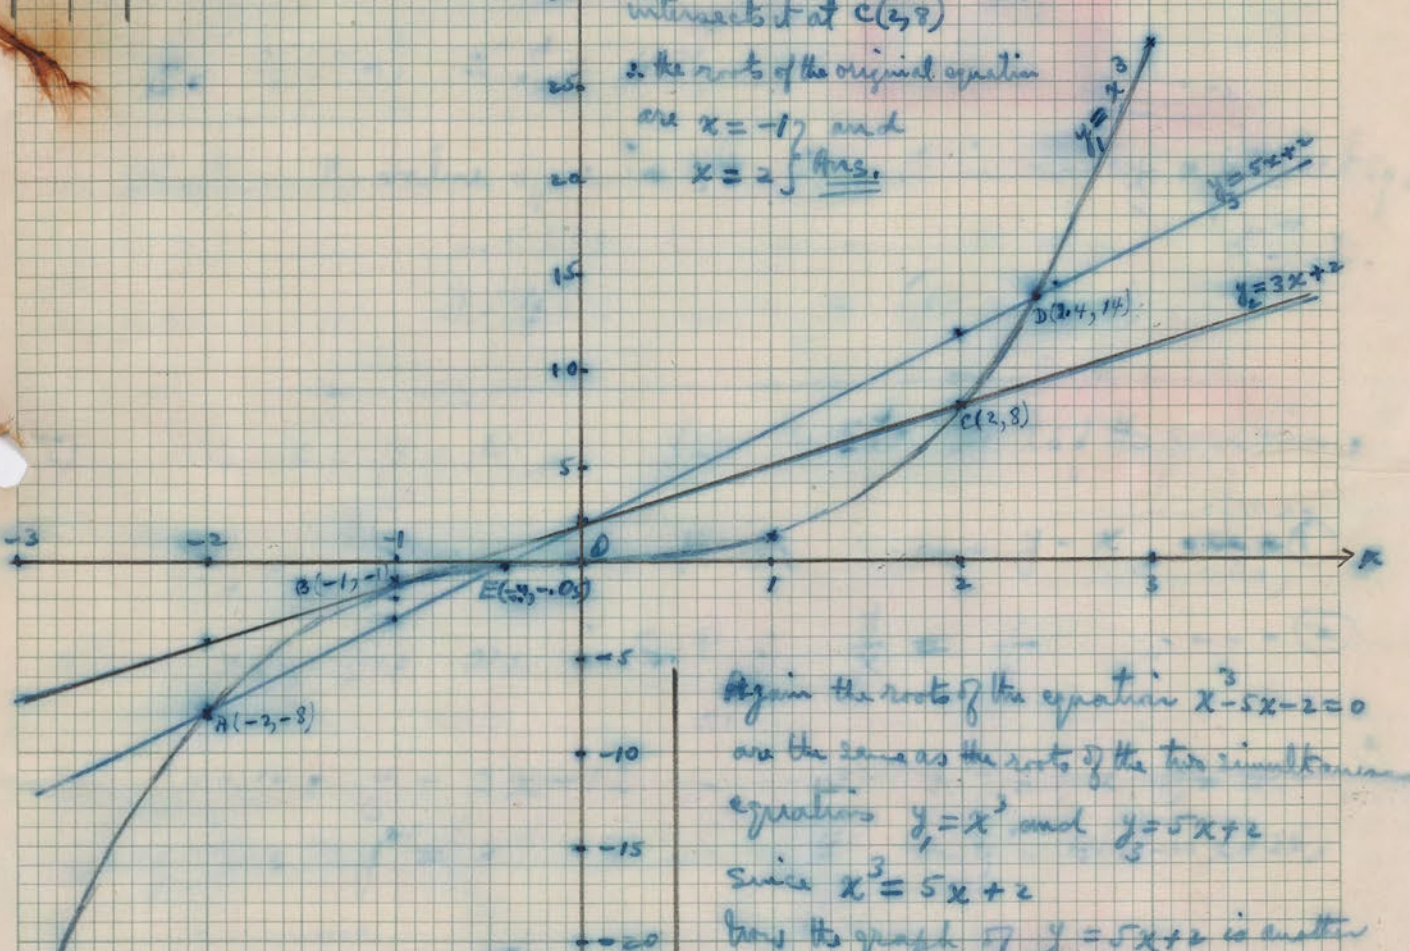 intersects it at C(2,8)
∴ the roots of the original equation
are x = -1 } and
x = 2 } Ans.
25
20
15
10
5
-5
-10
-15
-20
-3
-2
-1
O
1
2
3
x
y₁ = x³
y₃ = 5x+2
y₂ = 3x+2
D(2.4, 14)
C(2,8)
B(-1,-1)
A(-2,-8)
Again the roots of the equation x³-5x-2=0
are the same as the roots of the two simultaneous
equations y₁ = x³ and y₃ = 5x+2
Since x³ = 5x + 2
the graph of y = 5x+2 is another